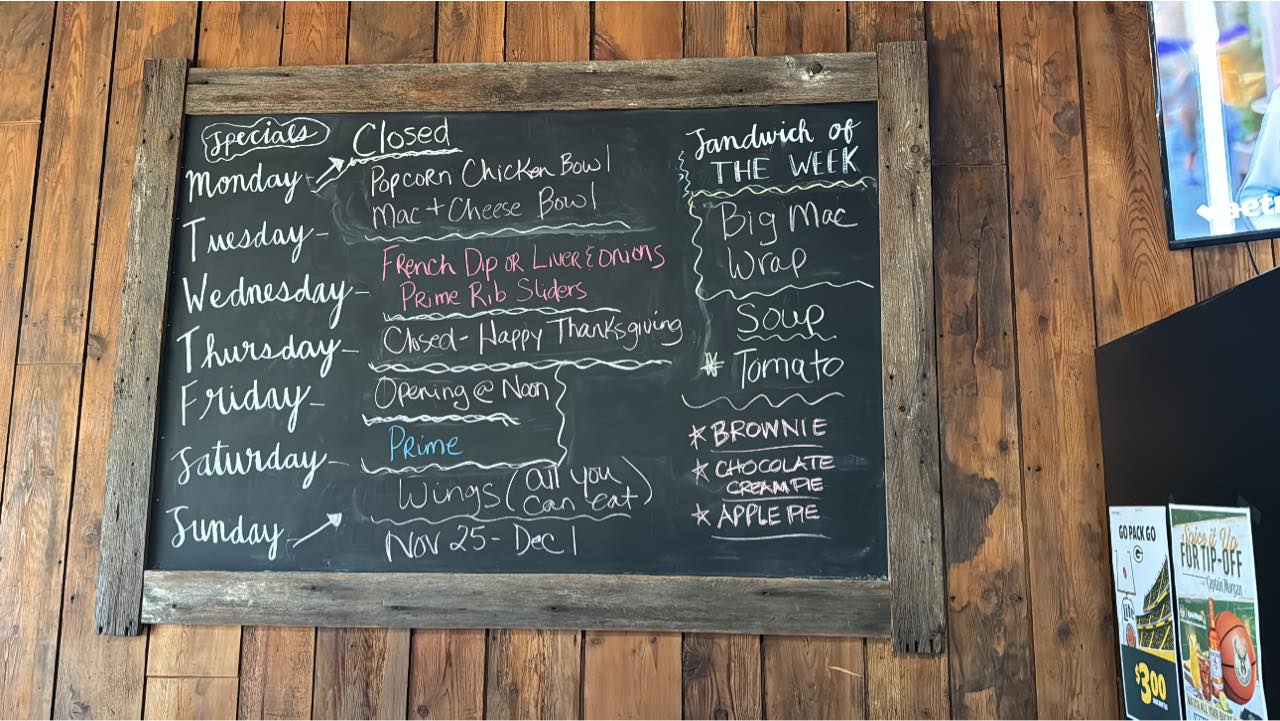 Specials
Closed
Monday-
Popcorn Chicken Bowl
Mac + Cheese Bowl
Tuesday-
French Dip or Liver & Onions
Prime Rib Sliders
Wednesday-
Closed - Happy Thanksgiving
Thursday-
Opening @ Noon
Friday-
Prime
Saturday-
Wings (all you can eat)
Sunday-
Nov 25 - Dec 1
Sandwich of
THE WEEK
Big Mac
Wrap
Soup
* Tomato
* BROWNIE
* CHOCOLATE
CREAM PIE
* APPLE PIE
GO PACK GO
G
$3.00
Spice it Up
FOR TIP-OFF
Captain Morgan